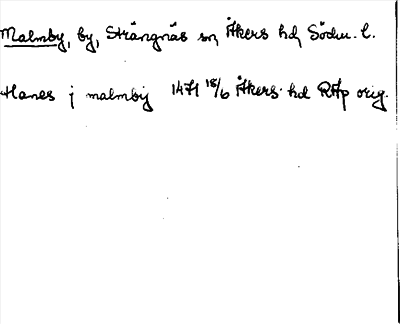 Malmby, by, Strängnäs sn, Åkers hd, Söderm. l.
Hanes j malmby 1471 18/6 Åkers hd RAp orig.